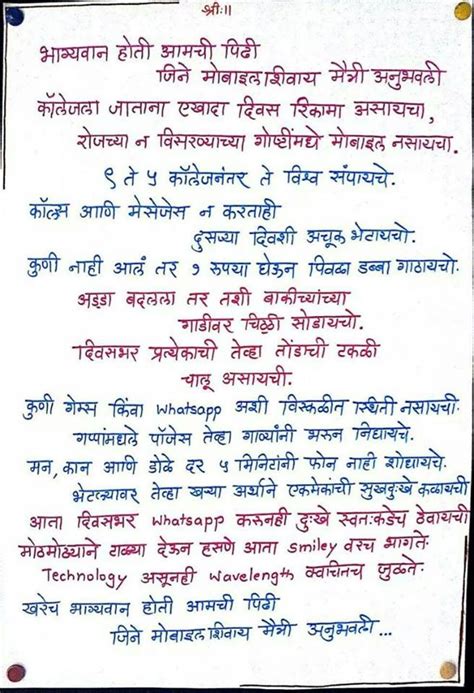 श्रीः॥
भाग्यवान होती आमची पिढी
जिने मोबाइलशिवाय मैत्री अनुभवली
कॉलेजला जाताना एखादा दिवस रिकामा असायचा,
रोजच्या न विसरण्याच्या गोष्टींमधे मोबाइल नसायचा.
९ ते ५ कॉलेजनंतर ते विश्व संपायचे.
कॉल्स आणि मेसेजेस न करताही
दुसऱ्या दिवशी अचूक भेटायचो.
कुणी नाही आलं तर १ रुपया घेऊन पिवळा डब्बा गाठायचो.
अड्डा बदलला तर तशी बाकीच्यांच्या
गाडीवर चिठ्ठी सोडायचो.
दिवसभर प्रत्येकाची तेव्हा तोंडाची टकळी
चालू असायची.
कुणी गेम्स किंवा whatsapp अशी विस्कळीत स्थिती नसायची.
गप्पांमधले पॉजेस तेव्हा गाण्यांनी भरून निघायचे.
मन, कान आणि डोळे दर ५ मिनिटांनी फोन नाही शोधायचे.
भेटल्यावर तेव्हा खऱ्या अर्थाने एकमेकांची सुखदुःखे कळायची
आता दिवसभर whatsapp करूनही दुःखे स्वतःकडेच ठेवायची
मोठमोठ्याने टाळ्या देऊन हसणे आता smiley वरच भागते.
Technology असूनही wavelength क्वचितच जुळते.
खरेच भाग्यवान होती आमची पिढी
जिने मोबाइलशिवाय मैत्री अनुभवली...